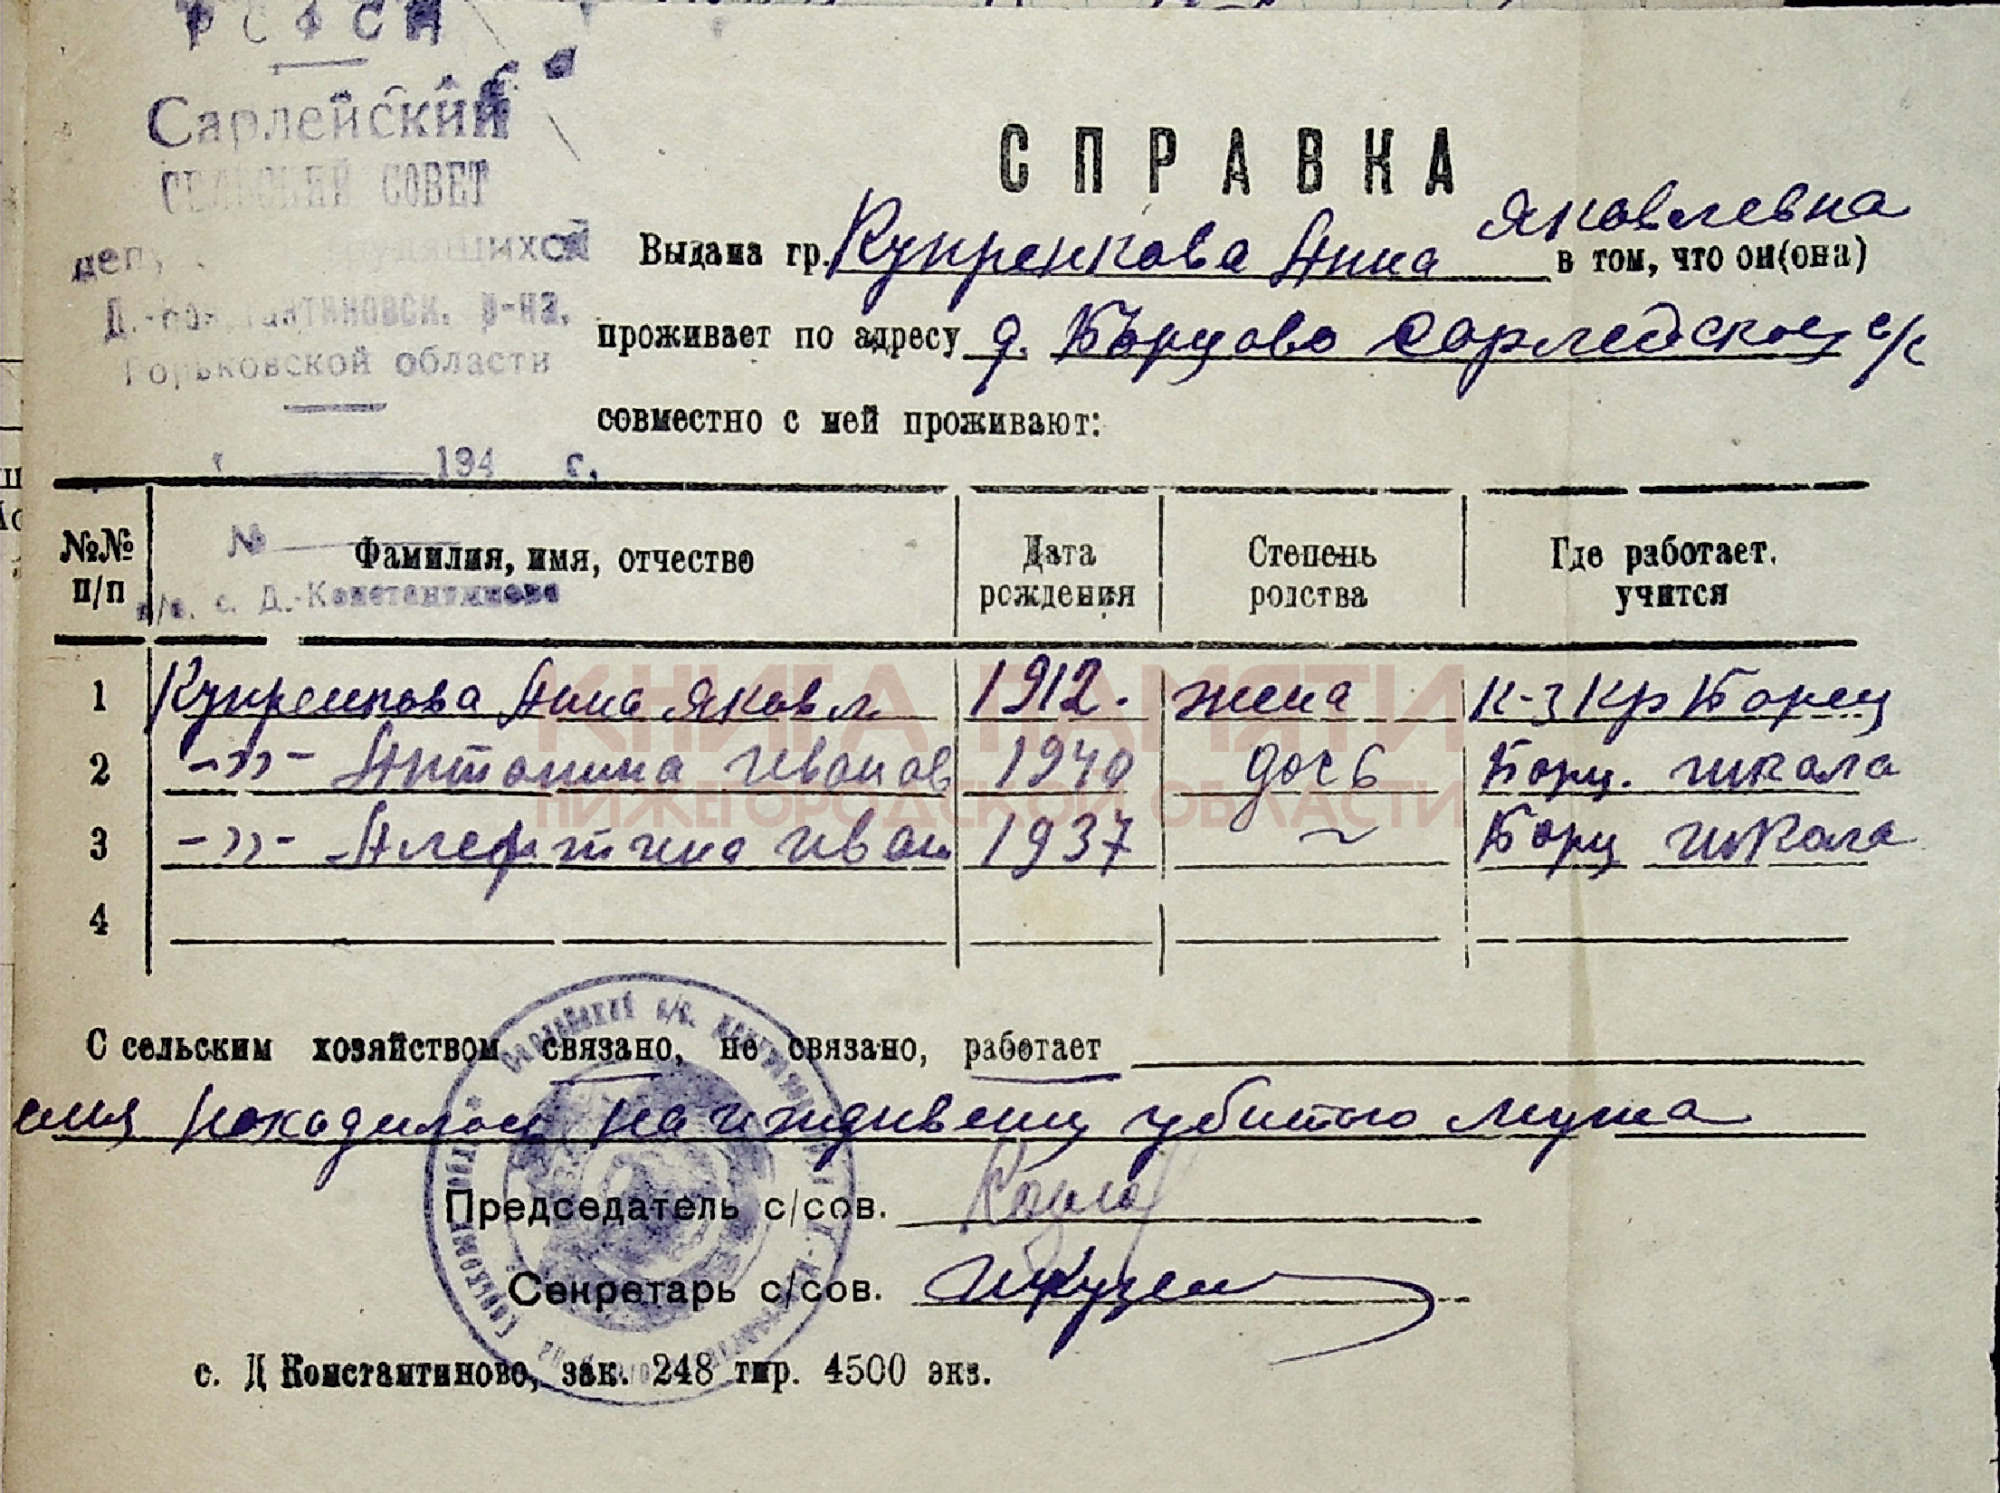 РСФСР
Сарлейский
СЕЛЬСКИЙ СОВЕТ
трудящихся
Д.-Константиновск. р-на,
Горьковской области
194 г.
№
п/о. с. Д.-Константиново
СПРАВКА
Выдана гр. Купренкова Анна Яковлевна в том, что он(она)
проживает по адресу д. Борцово Сарлейского с/с
совместно с ней проживают:
№№ п/п Фамилия, имя, отчество Дата рождения Степень родства Где работает. учится
1 Купренкова Анна Яковл 1912. жена к-з Кр Борец
2 -»- Антонина Иванов 1940 дочь Борц. школа
3 -»- Алефтина Иван 1937 ~ Борц школа
4
КНИГА ПАМЯТИ
НИЖЕГОРОДСКОЙ ОБЛАСТИ
С сельским хозяйством связано, не связано, работает
находилась на иждивении убитого мужа
Председатель с/сов.
Секретарь с/сов.
с. Д Константиново, зак. 248 тир. 4500 экз.